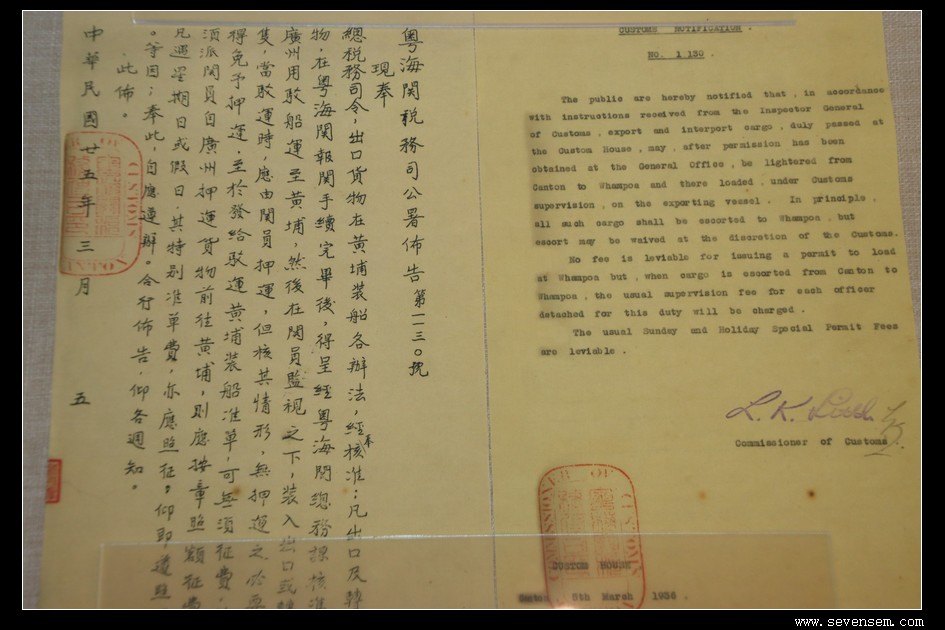 粵海関稅務司公署佈告第一一三〇號
現奉
總稅務司令，出口貨物在黃埔裝船各辦法，經奉核准；凡出口及轉
物，在粵海関報関手續完畢後，得呈經粵海関總務課核准
廣州用駁船運至黃埔，然後在関員監視之下，裝入出口或轉
隻，當駁運時，應由関員押運，但核其情形，無押運之必要
得免予押運，至於發給駁運黃埔裝船准單，可無須征費，
須派関員自廣州押運貨物前往黃埔，則應按章照額征費
凡遇星期日或假日，其特别准單費，亦應照征。仰即遵照
。等因；奉此，自應遵辦。合行佈告，仰各週知。
此佈。
中華民國廿五年三月五
CUSTOMS NOTIFICATION.
NO. 1130.
The public are hereby notified that, in accordance
with instructions received from the Inspector General
of Customs, export and interport cargo, duly passed at
the Custom House, may, after permission has been
obtained at the General Office, be lightered from
Canton to Whampoa and there loaded, under Customs
supervision, on the exporting vessel. In principle,
all such cargo shall be escorted to Whampoa, but
escort may be waived at the discretion of the Customs.
No fee is leviable for issuing a permit to load
at Whampoa but, when cargo is escorted from Canton to
Whampoa, the usual supervision fee for each officer
detached for this duty will be charged.
The usual Sunday and Holiday Special Permit Fees
are leviable.
L. K.
Commissioner of Customs.
COMMISSIONER OF CUSTOMS
CUSTOM HOUSE
Canton, 5th March 1936.
www.sevensem.com